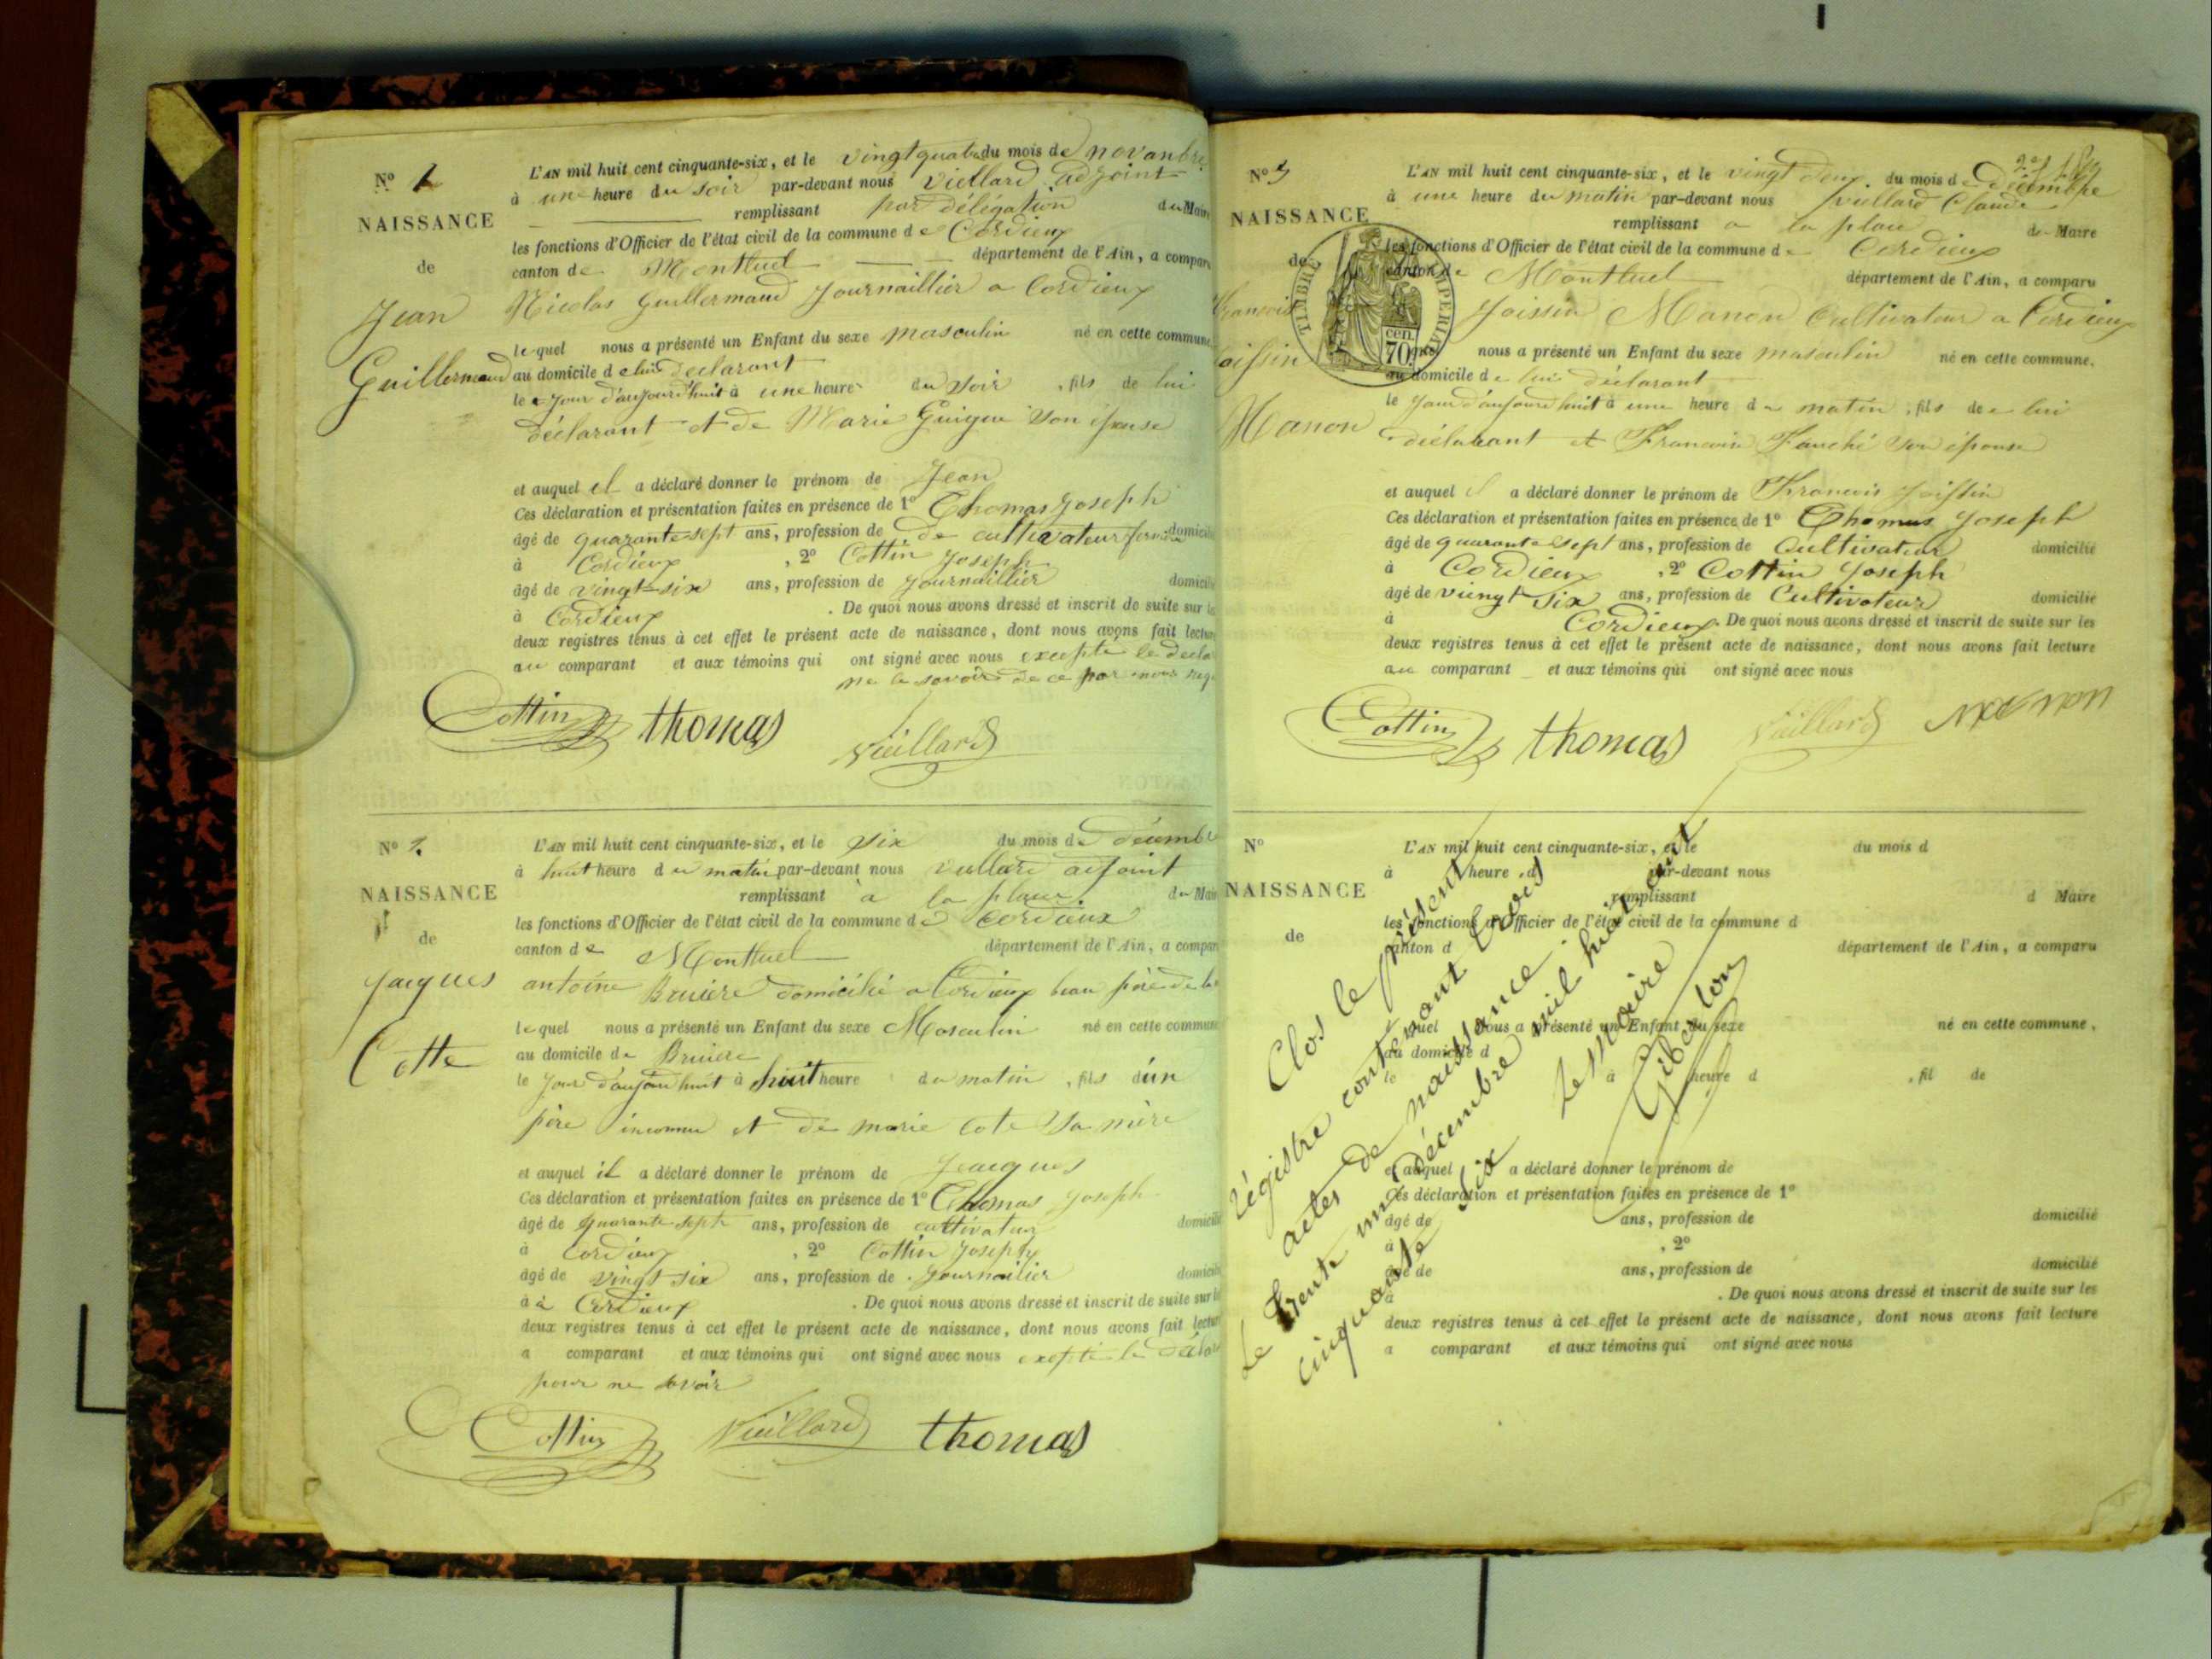 N° 1
NAISSANCE
de
Jean
Guillermaud
L'AN mil huit cent cinquante-six, et le vingt quatre du mois de novanbre
à une heure du soir par-devant nous Viellard adjoint
remplissant par délégation du Maire
les fonctions d'Officier de l'état civil de la commune de Cordieux
canton de Montluel département de l'Ain, a compar
Nicolas Guillermaud Journaillier a Cordieux
lequel nous a présenté un Enfant du sexe masculin né en cette commune
au domicile de lui declarant
le jour d'aujourd'huit à une heure du soir, fils de lui
déclarant et de Marie Guigue son épouse
et auquel il a déclaré donner le prénom de Jean
Ces déclaration et présentation faites en présence de 1° Thomas Joseph
âgé de quarante sept ans, profession de de cultivateur domicil
à Cordieux, 2° Cottin Joseph
âgé de vingt six ans, profession de Journaillier domicili
à Cordieux. De quoi nous avons dressé et inscrit de suite sur le
deux registres tenus à cet effet le présent acte de naissance, dont nous avons fait lectur
au comparant et aux témoins qui ont signé avec nous excepté le decla
ne le savoir de ce par nous req
Cottin thomas Vieillard
N° 2
NAISSANCE
de
Jacques
Cotte
L'AN mil huit cent cinquante-six, et le six du mois de décemb
à huit heure du matin par-devant nous Viellard adjoint
remplissant à la place du Mai
les fonctions d'Officier de l'état civil de la commune de Cordieux
canton de Montluel département de l'Ain, a compar
antoine Bruière domicilié a Cordieux beau père de la
lequel nous a présenté un Enfant du sexe Masculin né en cette commune
au domicile de Bruière
le jour d'aujourd'huit à huit heure du matin, fils d'un
père inconnu et de marie cote sa mère
et auquel il a déclaré donner le prénom de Jeacques
Ces déclaration et présentation faites en présence de 1° Thomas Joseph
âgé de quarante sept ans, profession de cultivateur domicili
à Cordieux, 2° Cottin Joseph
âgé de vingt six ans, profession de Journailier domicili
à à Cordieux. De quoi nous avons dressé et inscrit de suite sur le
deux registres tenus à cet effet le présent acte de naissance, dont nous avons fait lectur
a comparant et aux témoins qui ont signé avec nous exepté le décla
pour ne savoir
Cottin Vieillard thomas
N° 3
NAISSANCE
de
François
oissin
Manon
TIMBRE IMPERIAL
70 cen.
L'AN mil huit cent cinquante-six, et le vingt deux du mois de Décembre
à une heure du matin par-devant nous Viellard Claude
remplissant a la place de Maire
les fonctions d'Officier de l'état civil de la commune de Cordieux
canton de Montluel département de l'Ain, a comparu
Joissin Manon Cultivateur a Cordieux
quel nous a présenté un Enfant du sexe masculin né en cette commune.
au domicile de lui déclarant
le jour d'aujourd'huit à une heure du matin, fils de lui
déclarant et Francoise Fauché son épouse
et auquel il a déclaré donner le prénom de Francois Joissin
Ces déclaration et présentation faites en présence de 1° Thomas Joseph
âgé de quarante sept ans, profession de Cultivateur domicilié
à Cordieux, 2° Cottin Joseph
âgé de viengt six ans, profession de Cultivateur domicilié
à Cordieux. De quoi nous avons dressé et inscrit de suite sur les
deux registres tenus à cet effet le présent acte de naissance, dont nous avons fait lecture
au comparant et aux témoins qui ont signé avec nous
Cottin thomas Vieillard manon
N°
NAISSANCE
de
L'AN mil huit cent cinquante-six, et le du mois d
à heure d par-devant nous
remplissant d Maire
les fonctions d'Officier de l'état civil de la commune d
canton d département de l'Ain, a comparu
quel nous a présenté un Enfant du sexe né en cette commune,
au domicile d
le à heure d, fil de
et auquel a déclaré donner le prénom de
Ces déclaration et présentation faites en présence de 1°
âgé de ans, profession de domicilié
à, 2°
âgé de ans, profession de domicilié
à. De quoi nous avons dressé et inscrit de suite sur les
deux registres tenus à cet effet le présent acte de naissance, dont nous avons fait lecture
a comparant et aux témoins qui ont signé avec nous
Clos le présent
régistre contenant trois
actes de naissance.
Le trente un décembre mil huit cent
cinquante six
Le Maire
Giberton